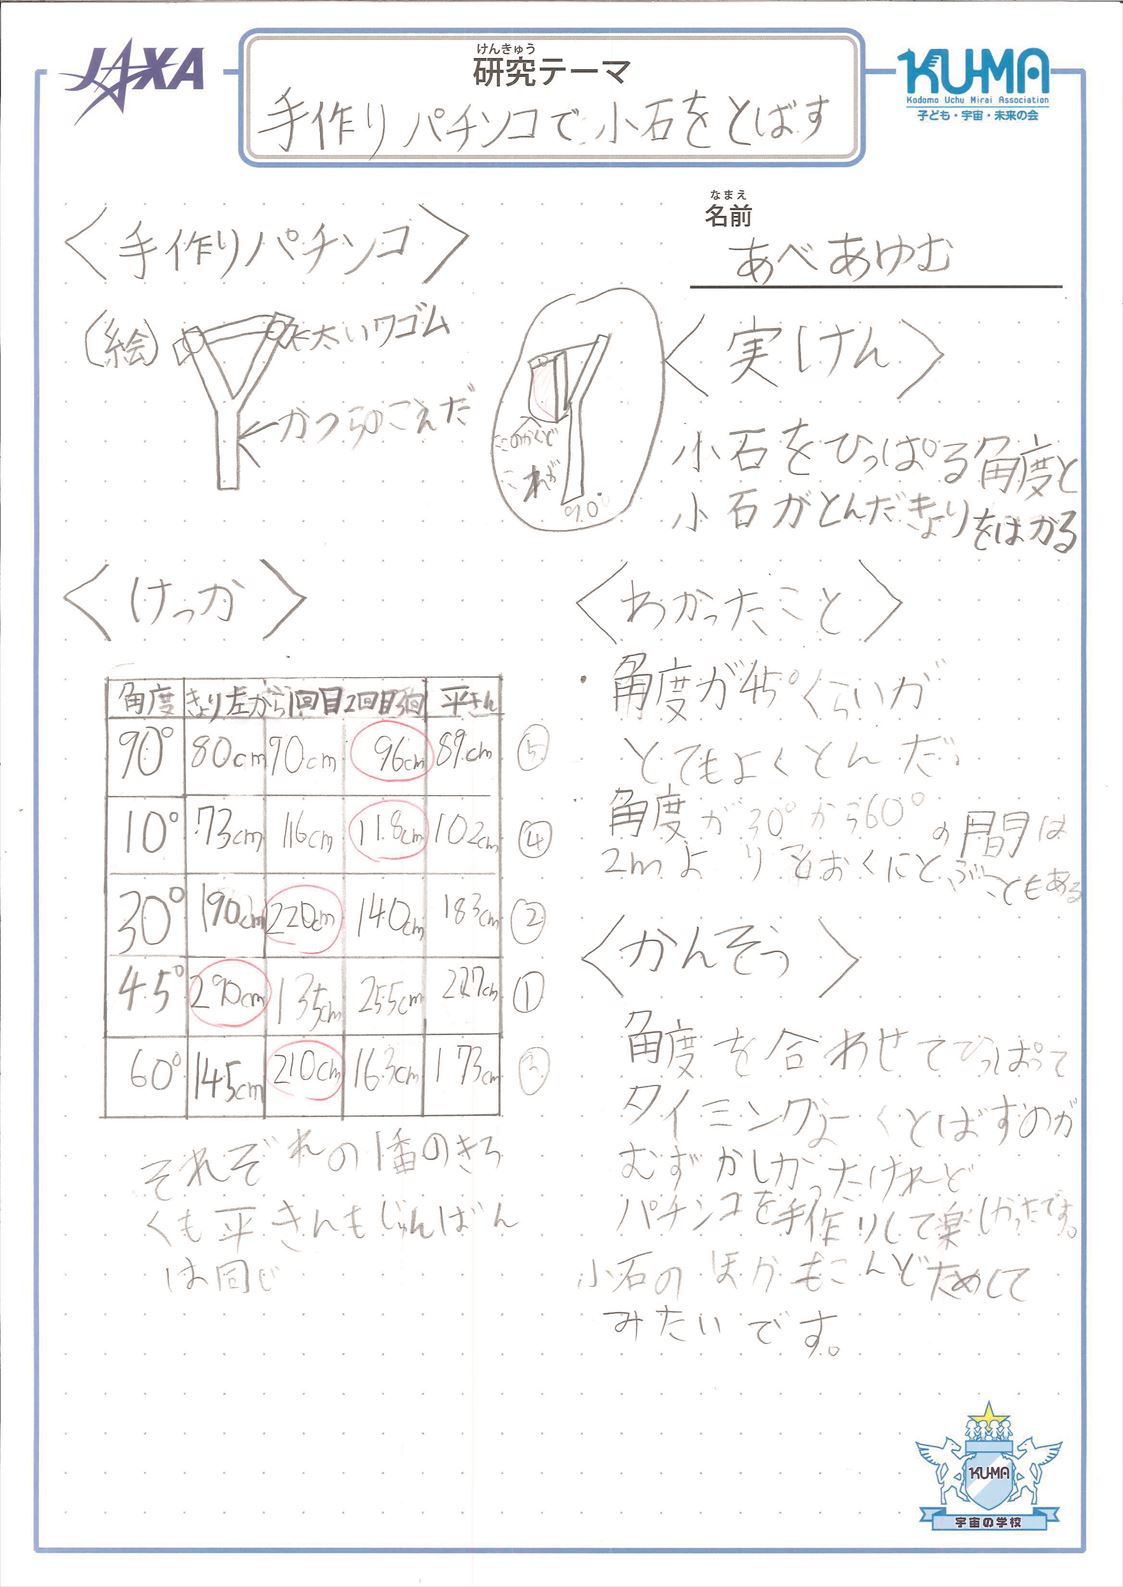 JAXA
けんきゅう
研究テーマ
手作りパチンコで小石をとばす
KU-MA
Kodomo Uchu Mirai Association
子ども・宇宙・未来の会
なまえ
名前
あべあゆむ
〈手作りパチンコ〉
(絵)
太いワゴム
かつらのこえだ
このかくど
これが
90°
〈実けん〉
小石をひっぱる角度と
小石がとんだきょりをはかる
〈けっか〉
角度 きょり左から1回目2回目3回 平きん
90° 80cm 90cm 96cm 89cm ⑤
10° 73cm 116cm 118cm 102cm ④
30° 190cm 220cm 140cm 183cm ②
45° 290cm 135cm 255cm 227cm ①
60° 145cm 210cm 163cm 173cm ③
それぞれの1番のきろ
くも平きんもじゅんばん
は同じ
〈わかったこと〉
・角度が45°くらいが
とてもよくとんだ。
・角度が30°から60°の間は
2mよりとおくにとぶこともある
〈かんそう〉
角度を合わせてひっぱって
タイミングよくとばすのが
むずかしかったけれど
パチンコを手作りして楽しかったです。
小石のほかもこんどためして
みたいです。
KU-MA
宇宙の学校